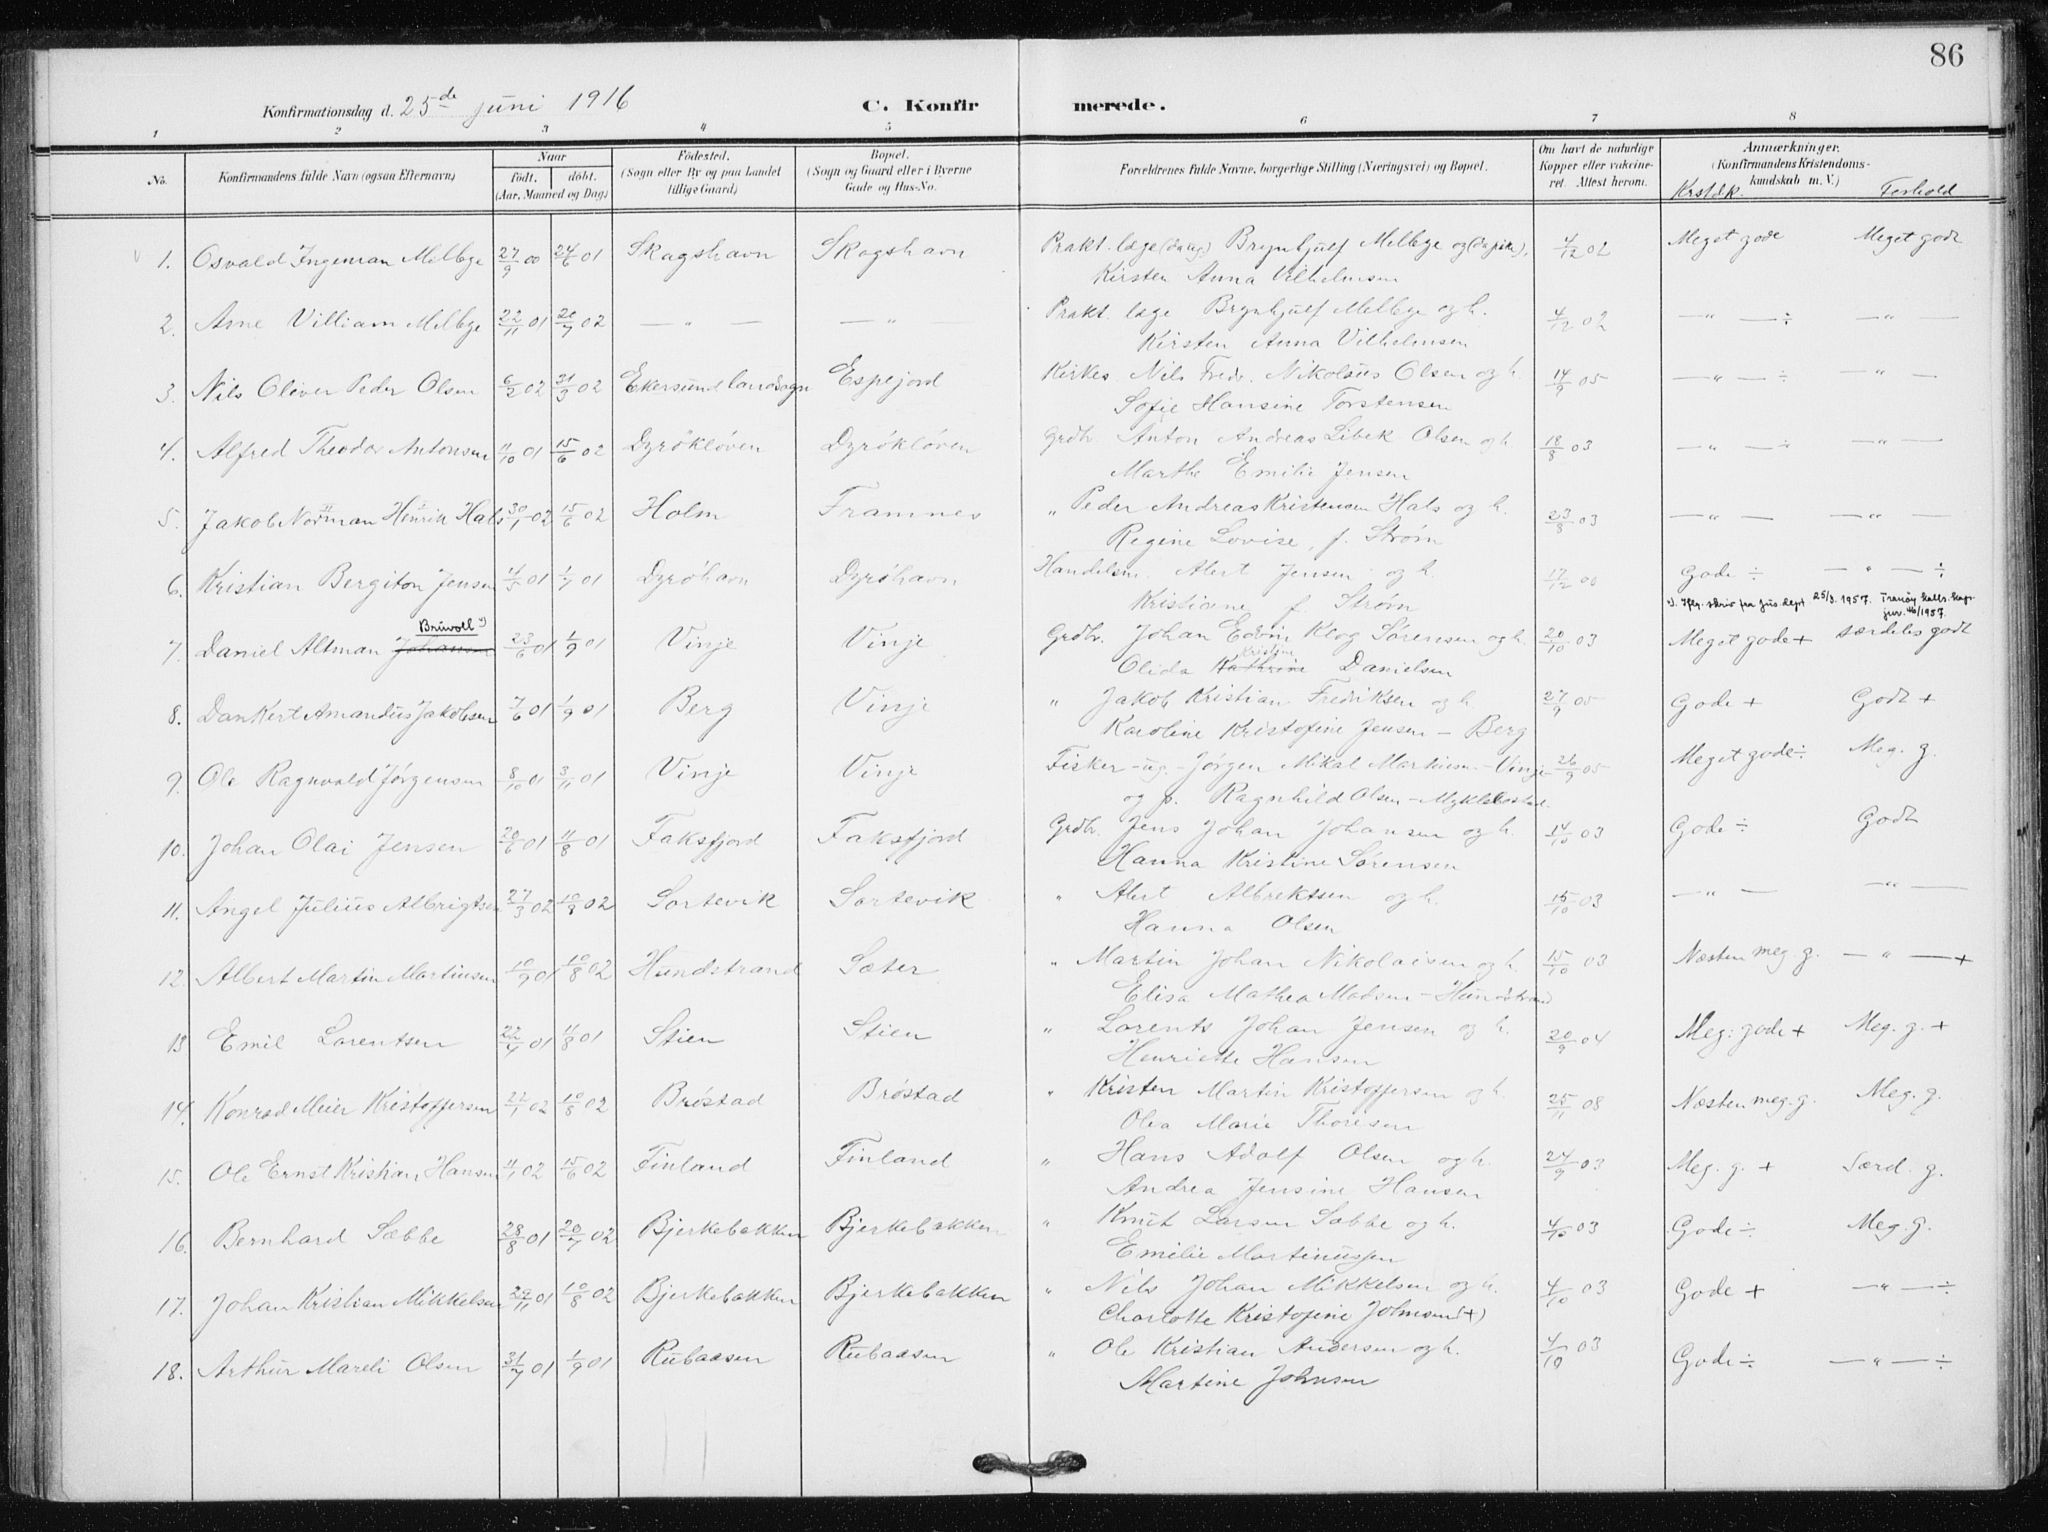 86
Konfirmationsdag d. 25de juni 1916 C. Konfirmerede.
1 2 3 4 5 6 7 8
No. Konfirmandens fulde Navn (ogsaa Efternavn) Naar født. døbt. (Aar, Maaned og Dag) Fødested. (Sogn eller By og paa Landet tillige Gaard) Bopæl. (Sogn og Gaard eller i Byerne Gade og Hus-No. Forældrenes fulde Navne, borgerlige Stilling (Næringsvei) og Bopæl. Om havt de naturlige Kopper eller vakcineret. Attest herom. Anmærkninger. (Konfirmandens Kristendomskundskab m. V.) Krstdk. Forhold
1. Osvald Ingeman Melbye 27/9 00 24/6 01 Skogshavn Skogshavn Prakt. læge (da ug) Brynhjulf Melbye og (da pike), 4/12 02 Meget gode Meget godt
Kirsten Anna Vilhelmsen
2. Arne Villiam Melbye 22/11 01 20/7 02 — " — — " — Prakt. læge Brynhjulf Melbye og h. 4/12 02 — " — ÷ — " —
Kirsten Anna Vilhelmsen
3. Nils Oliver Peder Olsen 6/2 02 31/3 02 Ekersund landsogn Espejord Kirkes. Nils Fredr. Nikolaus Olsen og h. 14/9 05 — " — ÷ — " —
Sofie Hansine Torstensen
4. Alfred Theodor Antonsen 11/10 01 15/6 02 Dyrökløven Dyrökløven Grdbr. Anton Andreas Libek Olsen og h. 18/8 03 — " — ÷ — " —
Marthe Emilie Jensen
5. Jakob Norman Henrik Hals 30/1 02 15/6 02 Holm Framnes " Peder Andreas Kristensen Hals og h. 23/8 03 — " — — " —
Regine Lovise, f. Strøm
6. Kristian Bergiton Jensen 4/5 01 1/7 01 Dyröhavn Dyröhavn Handelsm. Alert Jensen og h. 17/12 00 Gode ÷ — " — ÷
Kristiane f. Strøm
*). Iflg. skriv fra Jus. dept 25/3. 1957. Tranöy
Bruvoll *)
7. Daniel Altman Johansen 23/6 01 1/9 01 Vinje Vinje Grdbr. Johan Edvin Klog Sørensen og h. 20/10 03 Meget gode + særdeles godt
Olida Kathrine Kristine Danielsen
8. Dankert Amandus Jakobsen 7/6 01 1/9 01 Berg Vinje " Jakob Kristian Fredriksen og h. 27/9 05 Gode + Godt +
Karoline Kristofine Jensen – Berg
9. Ole Ragnvald Jørgensen 8/10 01 3/11 01 Vinje Vinje Fisker – ug. – Jørgen Mikal Martinsen – Vinje 26/9 05 Meget gode ÷ Meg. g.
og p. Ragnhild Olsen – Myklebostad
10. Johan Olai Jensen 20/6 01 11/8 01 Faksfjord Faksfjord Grdbr. Jens Johan Johansen og h. 14/10 03 Gode ÷ Godt
Hanna Kristine Sørensen
11. Angel Julius Albrigtsen 27/3 02 10/8 02 Sortevik Sortevik " Alert Albrektsen og h. 15/10 03 — " — — " —
Hanna Olsen
12. Albert Martin Martinsen 10/9 01 10/8 02 Hundstrand Sæter " Martin Johan Nikolaisen og h. 15/10 03 Næsten meg. g. — " — +
Elisa Mathea Madsen – Hundstrand
13 Emil Lorentsen 22/4 01 11/8 01 Stien Stien " Lorents Johan Jensen og h. 20/9 04 Meg: gode + Meg. g. +
Henriette Hansen
14. Konrad Meier Kristoffersen 22/1 02 10/8 02 Brøstad Brøstad " Kristen Martin Kristoffersen og h. 25/11 08 Næsten meg. g. Meg. g.
Olea Marie Thoresen
15. Ole Ernst Kristian Hansen 11/1 02 15/6 02 Finland Finland " Hans Adolf Olsen og h. 24/9 03 Meg. g. + Særd. g.
Andrea Jensine Hansen
16. Bernhard Sæbbe 28/8 01 20/7 02 Bjerkebakken Bjerkebakken " Knut Larsen Sæbbe og h. 4/10 03 Gode ÷ Meg. g.
Emilie Martinussen
17. Johan Kristian Mikkelsen 27/11 01 10/8 02 Bjerkebakken Bjerkebakken " Nils Johan Mikkelsen og h. 4/10 03 Gode + — " — ÷
Charlotte Kristofine Johnsen (+)
18. Arthur Mareli Olsen 31/7 01 1/9 01 Rubaasen Rubaasen " Ole Kristian Andersen og h. 4/10 03 Gode ÷ — " — ÷
Martine Johnsen